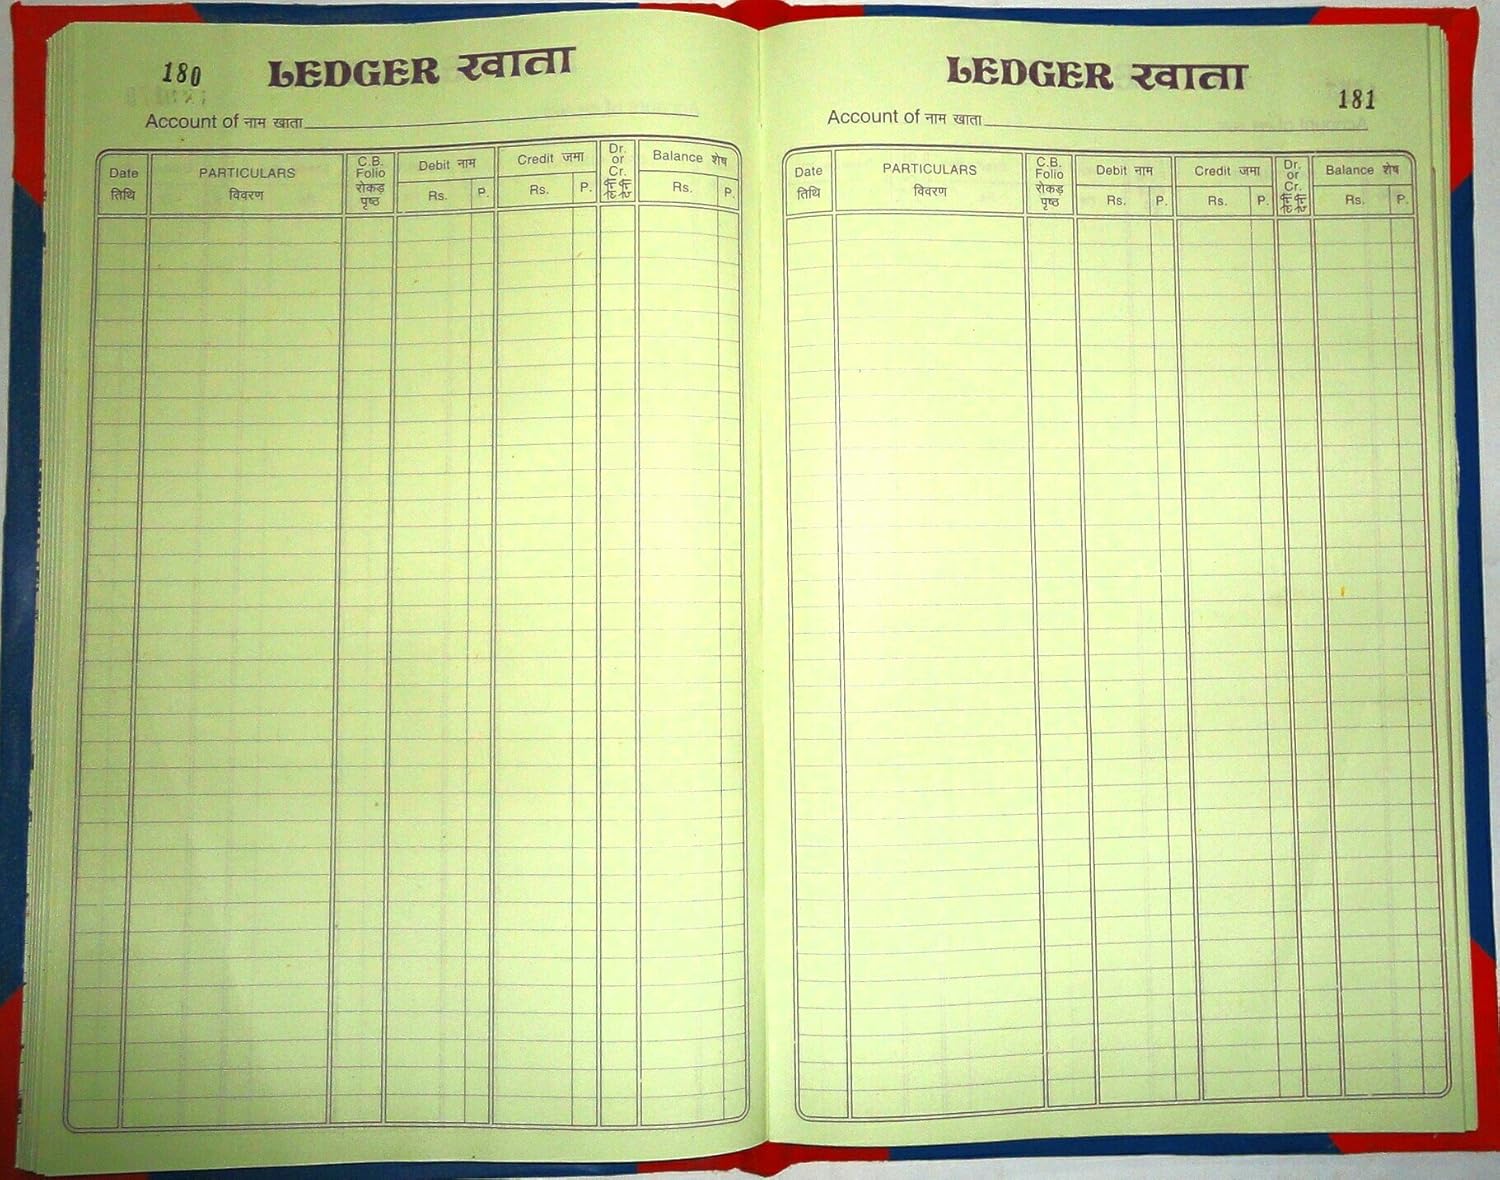 180
LEDGER खाता
Account of नाम खाता
Date
तिथि
PARTICULARS
विवरण
C.B.
Folio
रोकड़
पृष्ठ
Debit नाम
Rs. P.
Credit जमा
Rs. P.
Dr.
or
Cr.
Balance शेष
Rs. P.
LEDGER खाता
181
Account of नाम खाता
Date
तिथि
PARTICULARS
विवरण
C.B.
Folio
रोकड़
पृष्ठ
Debit नाम
Rs. P.
Credit जमा
Rs. P.
Dr.
or
Cr.
Balance शेष
Rs. P.